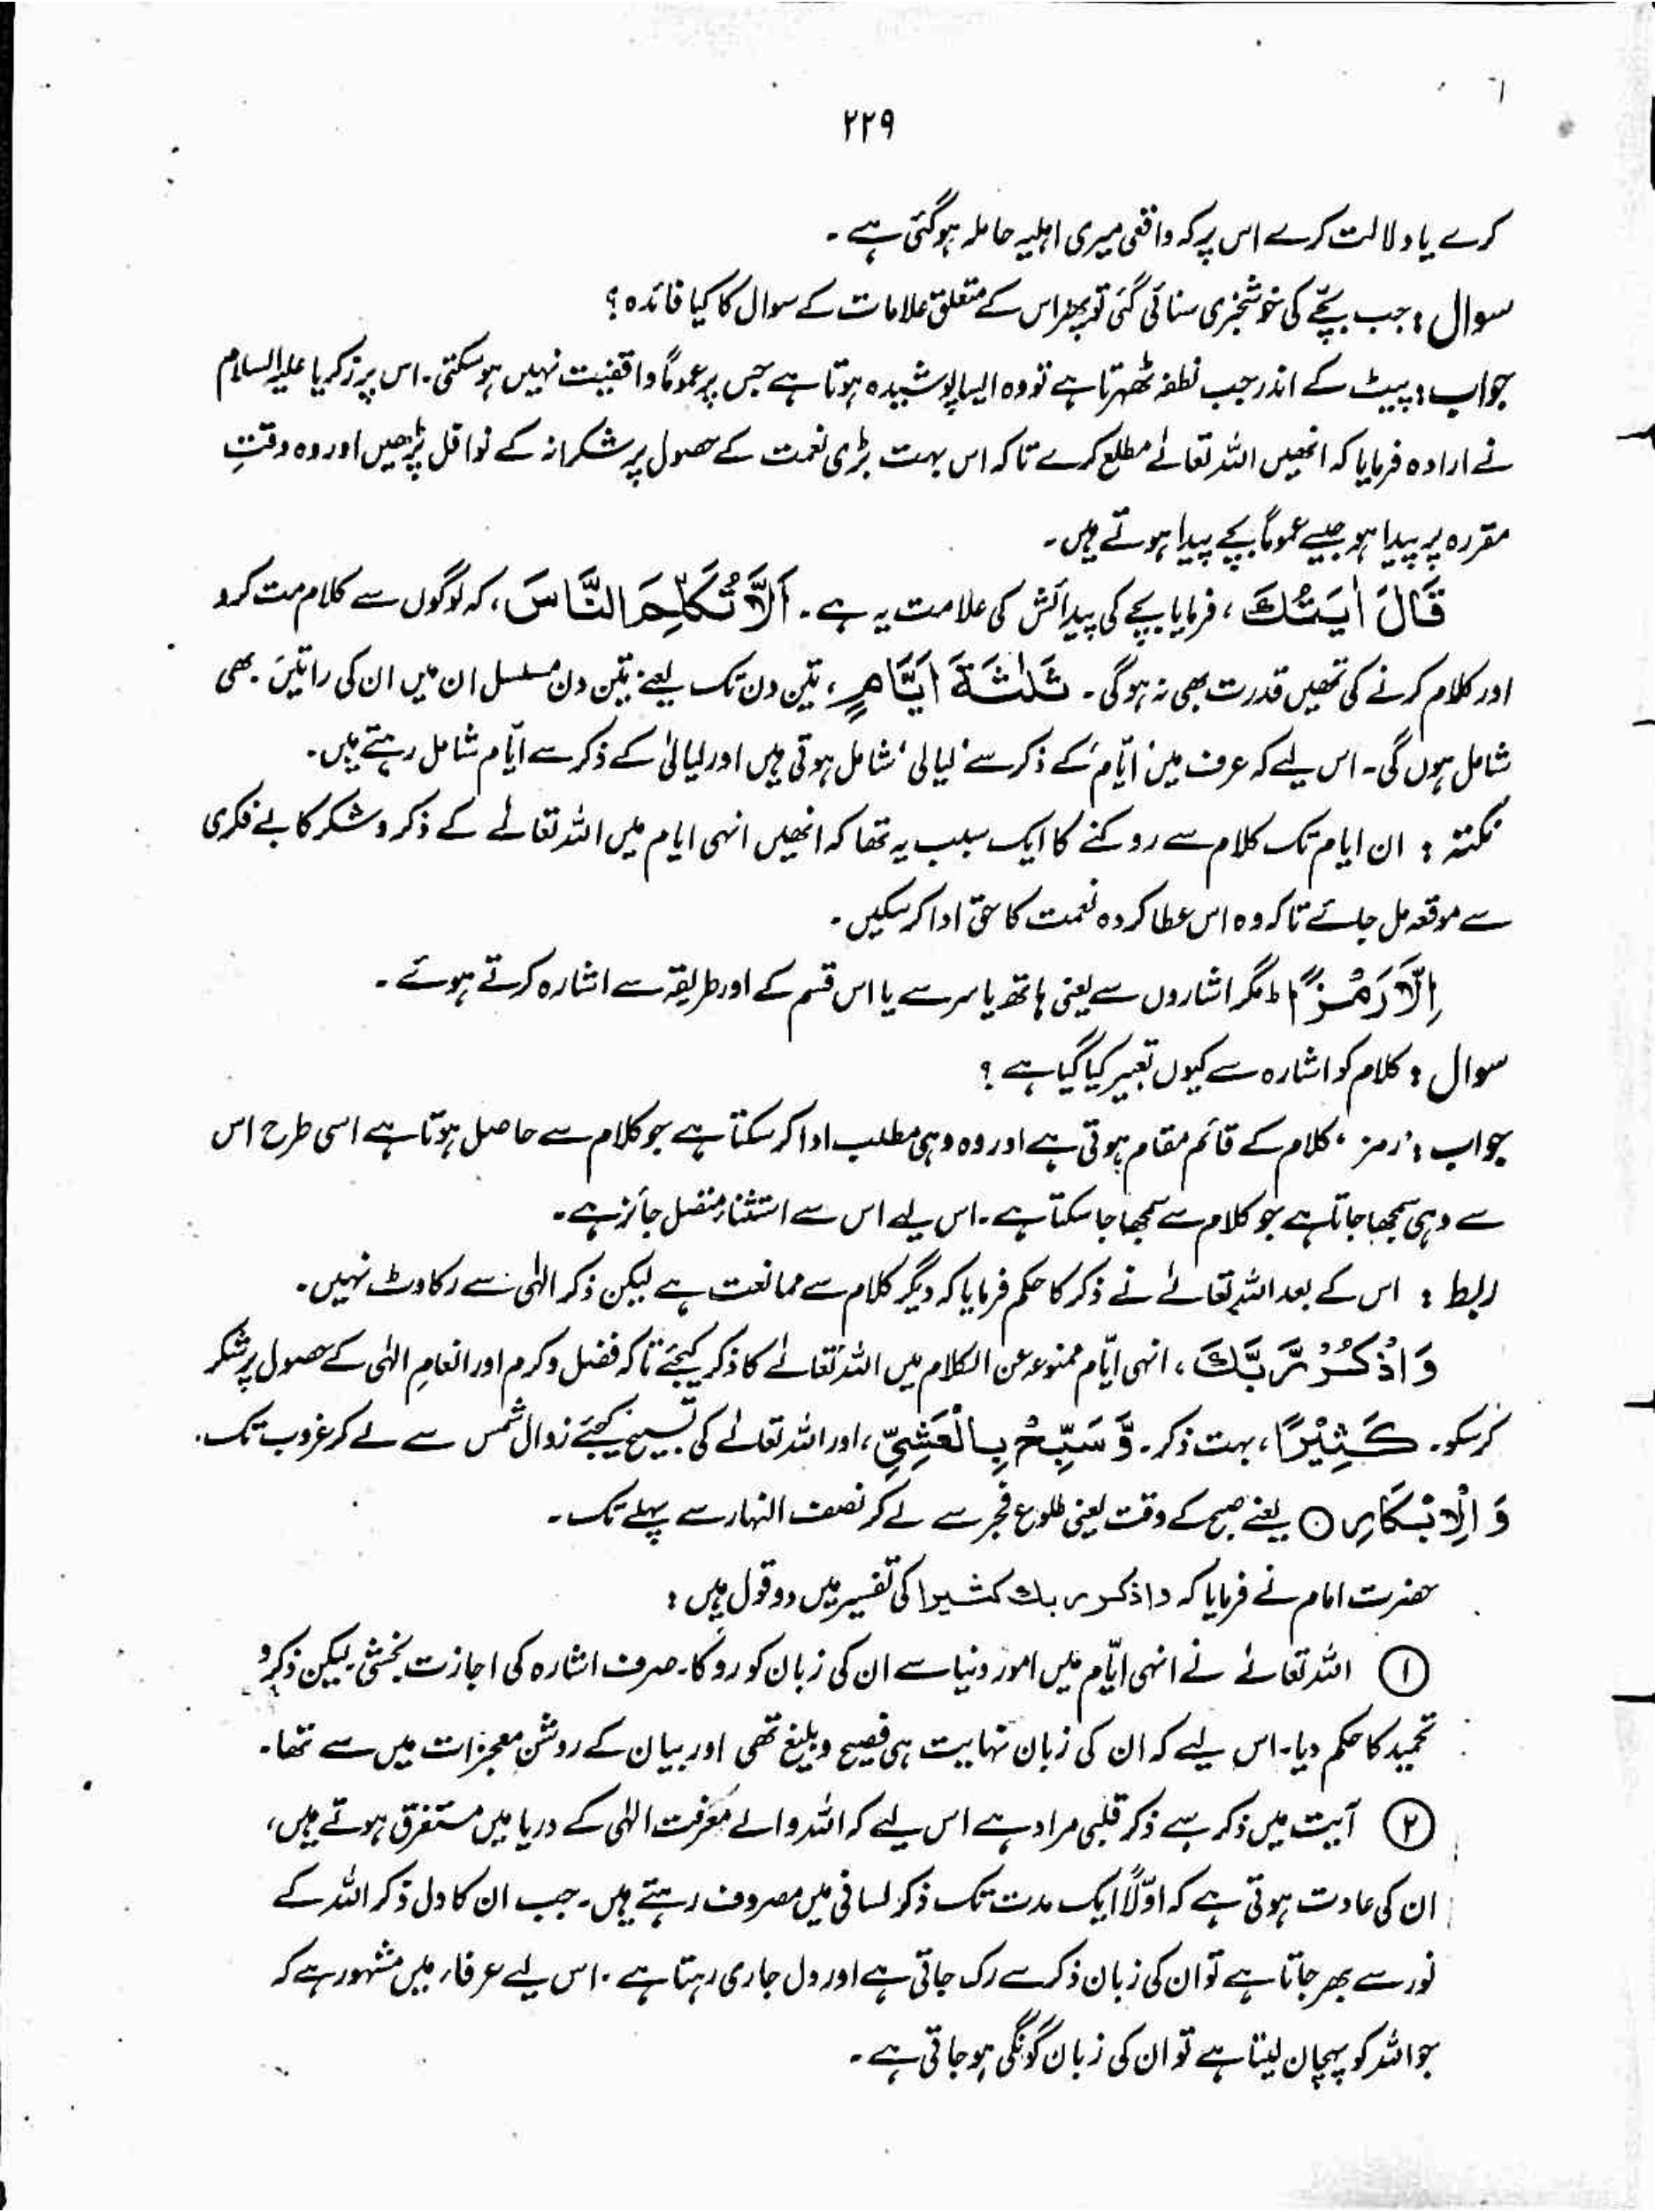 ۲۲۹
کرے یا دلالت کرے اس پر کہ واقعی میری اہلیہ حاملہ ہوگئی ہے ۔
سوال : جب بچّے کی خوشخبری سنائی گئی تو پھر اس کے متعلق علامات کے سوال کا کیا فائدہ ؟
جواب : پیٹ کے اندر جب نطفہ ٹھہرتا ہے تو وہ ایسا پوشیدہ ہوتا ہے جس پر عموماً واقفیت نہیں ہوسکتی ۔ اس پر زکریا علیہ السلام
نے ارادہ فرمایا کہ انھیں اللہ تعالےٰ مطلع کرے تا کہ اس بہت بڑی نعمت کے حصول پر شکرانہ کے نوافل پڑھیں اور وہ وقتِ
مقررہ پر پیدا ہو جیسے عموماً بچے پیدا ہوتے ہیں ۔
قَالَ اٰيَتُكَ ، فرمایا بچے کی پیدائش کی علامت یہ ہے ۔ اَلَّا تُكَلِّمَ النَّاسَ ، کہ لوگوں سے کلام مت کرو
اور کلام کرنے کی تمھیں قدرت بھی نہ ہوگی ۔ ثَلٰثَةَ اَيَّامٍ ، تین دن تک یعنے تین دن مسلسل ان میں ان کی راتیں بھی
شامل ہوں گی ۔ اس لیے کہ عرف میں 'ایّام' کے ذکر سے 'لیالی' شامل ہوتی ہیں اور لیالیٰ کے ذکر سے ایّام شامل رہتے ہیں ۔
نکتہ : ان ایام تک کلام سے روکنے کا ایک سبب یہ تھا کہ انھیں انہی ایام میں اللہ تعالےٰ کے ذکر و شکر کا بے فکری
سے موقعہ مل جائے تاکہ وہ اس عطا کردہ نعمت کا حق ادا کرسکیں ۔
اِلَّا رَمْزًا ط مگر اشاروں سے یعنی ہاتھ یا سر سے یا اس قسم کے اور طریقہ سے اشارہ کرتے ہوئے ۔
سوال : کلام کو اشارہ سے کیوں تعبیر کیا گیا ہے ؟
جواب : 'رمز' کلام کے قائم مقام ہوتی ہے اور وہ وہی مطلب ادا کرسکتا ہے جو کلام سے حاصل ہوتا ہے اسی طرح اس
سے وہی سمجھا جاتا ہے جو کلام سے سمجھا جا سکتا ہے ۔ اس لیے اس سے استثناء متصل جائز ہے ۔
ربط : اس کے بعد اللہ تعالےٰ نے ذکر کا حکم فرمایا کہ دیگر کلام سے ممانعت ہے لیکن ذکر الٰہی سے رکاوٹ نہیں ۔
وَ اذْكُرْ رَّبَّكَ ، انہی ایّام ممنوعہ عن الکلام میں اللہ تعالےٰ کا ذکر کیجئے تاکہ فضل و کرم اور انعامِ الٰہی کے حصول پر شکر
کرسکو ۔ كَثِيْرًا ، بہت ذکر ۔ وَّ سَبِّحْ بِالْعَشِيِّ ، اور اللہ تعالےٰ کی تسبیح کیجئے زوال شمس سے لے کر غروب تک ۔
وَ الْاِبْكَارِ ○ یعنے صبح کے وقت یعنی طلوع فجر سے لے کر نصف النہار سے پہلے تک ۔
حضرت امام نے فرمایا کہ واذكر ربك كثيرا کی تفسیر میں دو قول ہیں :
① اللہ تعالےٰ نے انہی ایّام میں امور دنیا سے ان کی زبان کو روکا ۔ صرف اشارہ کی اجازت بخشی لیکن ذکر و
تحمید کا حکم دیا ۔ اس لیے کہ ان کی زبان نہایت ہی فصیح و بلیغ تھی اور یہ ان کے روشن معجزات میں سے تھا ۔
② آیت میں ذکر سے ذکر قلبی مراد ہے اس لیے کہ اللہ والے معرفت الٰہی کے دریا میں مستغرق ہوتے ہیں ،
ان کی عادت ہوتی ہے کہ اوّلاً ایک مدت تک ذکر لسانی میں مصروف رہتے ہیں ۔ جب ان کا دل ذکر اللہ کے
نور سے بھر جاتا ہے تو ان کی زبان ذکر سے رک جاتی ہے اور دل جاری رہتا ہے ۔ اس لیے عرفاء میں مشہور ہے کہ
جو اللہ کو پہچان لیتا ہے تو ان کی زبان گونگی ہو جاتی ہے ۔